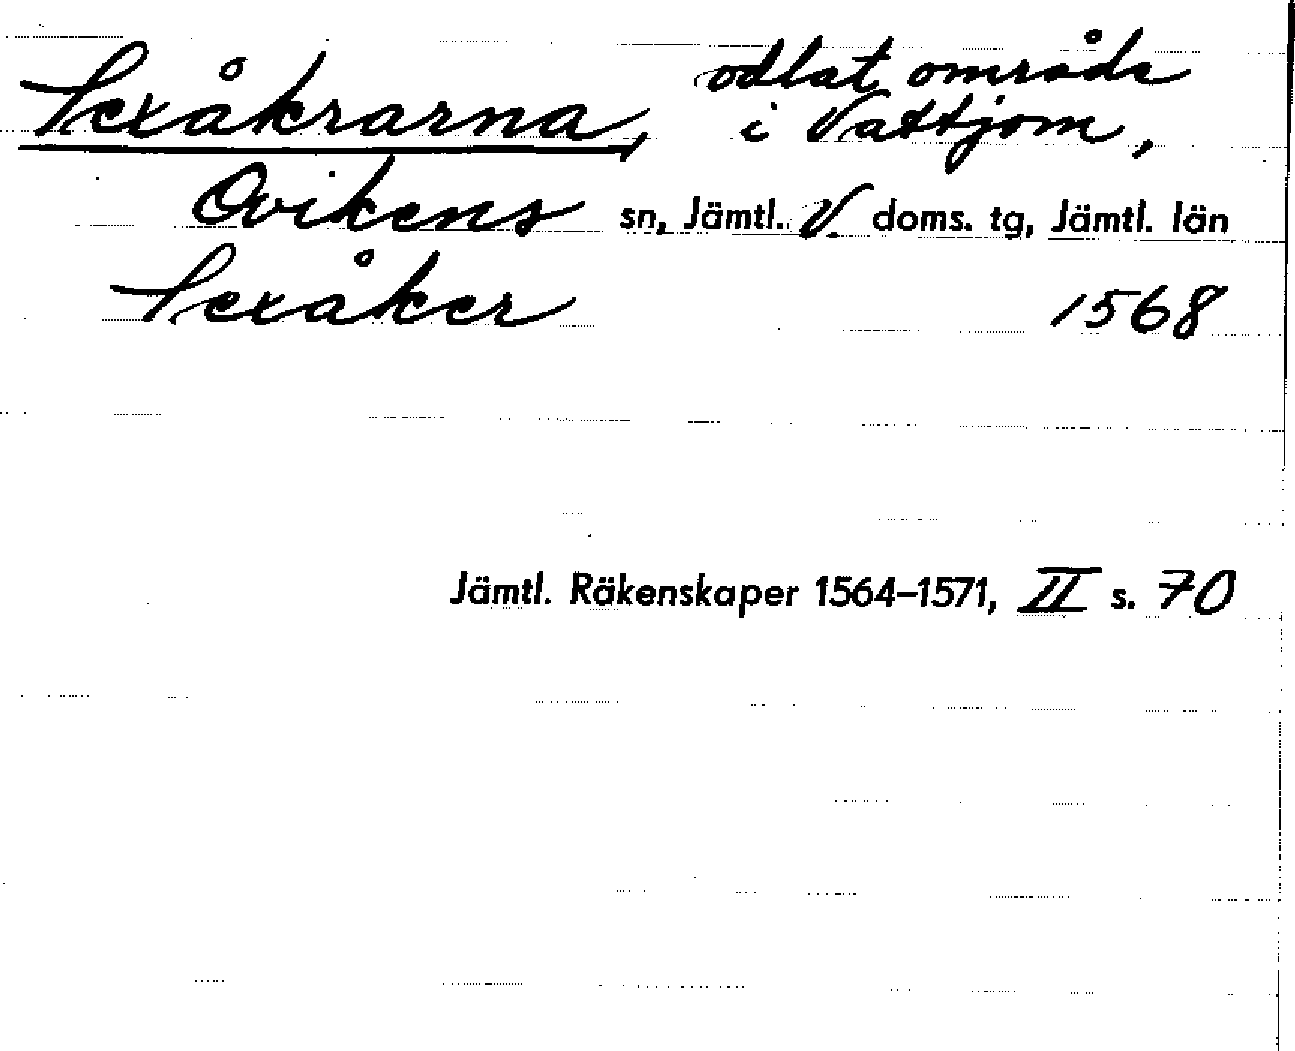 Sexåkrarna, odlat område
i Vattjom,
Ovikens sn, Jämtl. V. doms. tg, Jämtl. län
Sexåker 1568
Jämtl. Räkenskaper 1564–1571, II s. 70